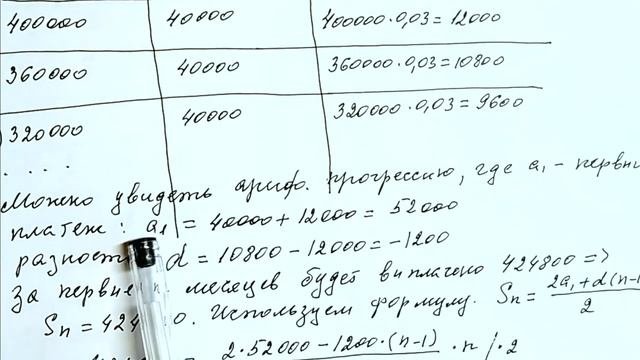 400000 40000 400000·0,03 = 12000
360000 40000 360000·0,03 = 10800
320000 40000 320000·0,03 = 9600
. . . .
Можно увидеть ариф. прогрессию, где a₁ - первый
платеж: a₁ = 40000 + 12000 = 52000
d = 10800 - 12000 = -1200
За первые месяцев будет выплачено 424800 =>
Используем формулу. Sn = 2a₁ + d(n-1) / 2
2·52000 - 1200·(n-1) · n |·2